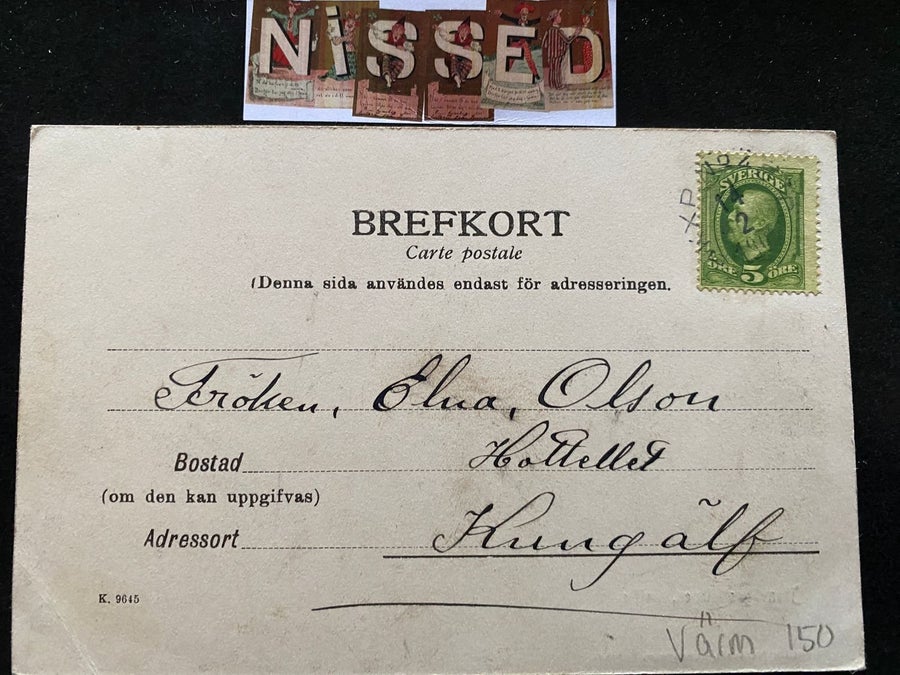 NiSSED
BREFKORT
Carte postale
(Denna sida användes endast för adresseringen.
SVERIGE
14
2
ÖRE 5 ÖRE
Fröken, Elna, Olson
Bostad Hottellet
(om den kan uppgifvas)
Adressort Kungälf
K. 9645
Värm 150